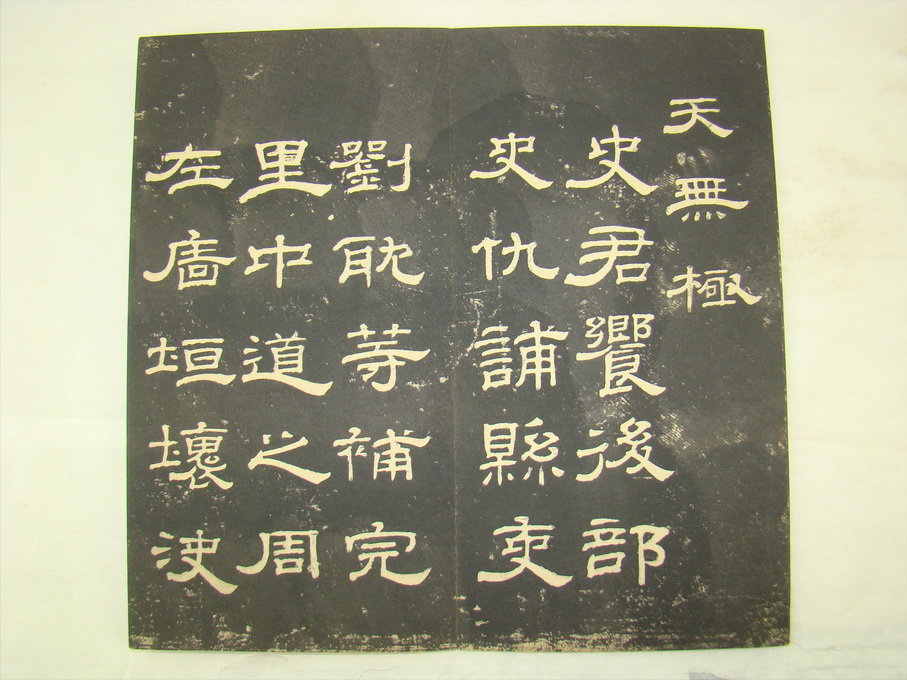 天無極
史君饗後部
史仇誧縣吏
劉耽等補完
里中道之周
左廧垣壞決